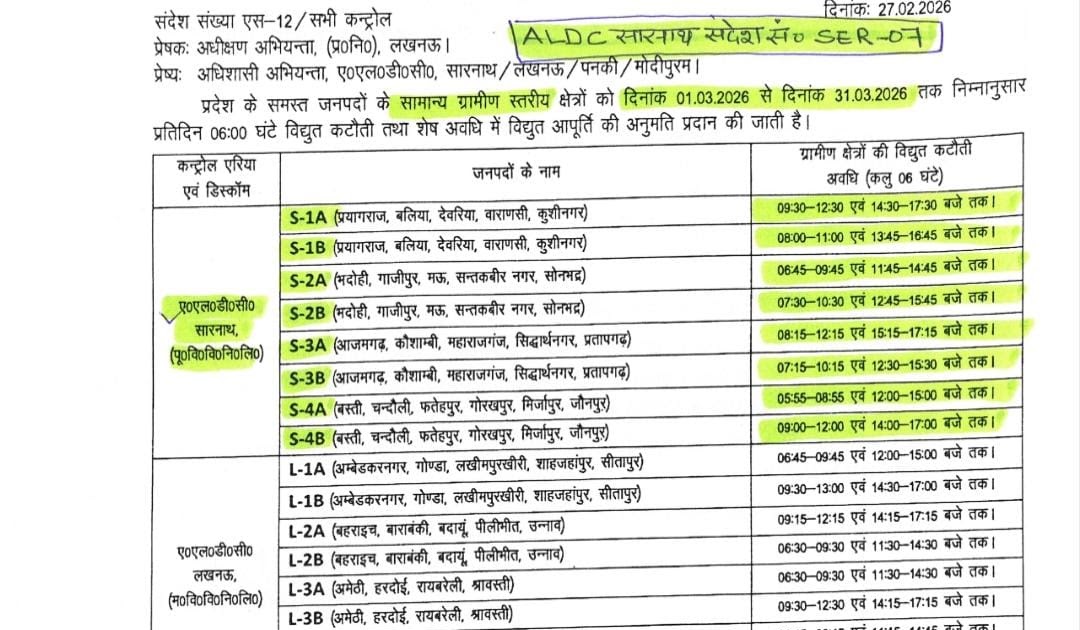 संदेश संख्या एस-12/सभी कन्ट्रोल
दिनांकः 27.02.2026
प्रेषकः अधीक्षण अभियन्ता, (प्र०नि०), लखनऊ।
ALDC सारनाथ संदेश सं० SER-07
प्रेष्यः अधिशासी अभियन्ता, ए०एल०डी०सी०, सारनाथ/लखनऊ/पनकी/मोदीपुरम।
प्रदेश के समस्त जनपदों के सामान्य ग्रामीण स्तरीय क्षेत्रों को दिनांक 01.03.2026 से दिनांक 31.03.2026 तक निम्नानुसार
प्रतिदिन 06:00 घंटे विद्युत कटौती तथा शेष अवधि में विद्युत आपूर्ति की अनुमति प्रदान की जाती है।
कन्ट्रोल एरिया एवं डिस्कॉम
जनपदों के नाम
ग्रामीण क्षेत्रों की विद्युत कटौती
अवधि (कलु 06 घंटे)
ए०एल०डी०सी०
सारनाथ,
(पू०वि०वि०नि०लि०)
S-1A (प्रयागराज, बलिया, देवरिया, वाराणसी, कुशीनगर) 09:30-12:30 एवं 14:30-17:30 बजे तक।
S-1B (प्रयागराज, बलिया, देवरिया, वाराणसी, कुशीनगर) 08:00-11:00 एवं 13:45-16:45 बजे तक।
S-2A (भदोही, गाजीपुर, मऊ, सन्तकबीर नगर, सोनभद्र) 06:45-09:45 एवं 11:45-14:45 बजे तक।
S-2B (भदोही, गाजीपुर, मऊ, सन्तकबीर नगर, सोनभद्र) 07:30-10:30 एवं 12:45-15:45 बजे तक।
S-3A (आजमगढ़, कौशाम्बी, महाराजगंज, सिद्धार्थनगर, प्रतापगढ़) 08:15-12:15 एवं 15:15-17:15 बजे तक।
S-3B (आजमगढ़, कौशाम्बी, महाराजगंज, सिद्धार्थनगर, प्रतापगढ़) 07:15-10:15 एवं 12:30-15:30 बजे तक।
S-4A (बस्ती, चन्दौली, फतेहपुर, गोरखपुर, मिर्जापुर, जौनपुर) 05:55-08:55 एवं 12:00-15:00 बजे तक।
S-4B (बस्ती, चन्दौली, फतेहपुर, गोरखपुर, मिर्जापुर, जौनपुर) 09:00-12:00 एवं 14:00-17:00 बजे तक।
ए०एल०डी०सी०
लखनऊ,
(म०वि०वि०नि०लि०)
L-1A (अम्बेडकरनगर, गोण्डा, लखीमपुरखीरी, शाहजहांपुर, सीतापुर) 06:45-09:45 एवं 12:00-15:00 बजे तक।
L-1B (अम्बेडकरनगर, गोण्डा, लखीमपुरखीरी, शाहजहांपुर, सीतापुर) 09:30-13:00 एवं 14:30-17:00 बजे तक।
L-2A (बहराइच, बाराबंकी, बदायूं, पीलीभीत, उन्नाव) 09:15-12:15 एवं 14:15-17:15 बजे तक।
L-2B (बहराइच, बाराबंकी, बदायूं, पीलीभीत, उन्नाव) 06:30-09:30 एवं 11:30-14:30 बजे तक।
L-3A (अमेठी, हरदोई, रायबरेली, श्रावस्ती) 06:30-09:30 एवं 11:30-14:30 बजे तक।
L-3B (अमेठी, हरदोई, रायबरेली, श्रावस्ती) 09:30-12:30 एवं 14:15-17:15 बजे तक।